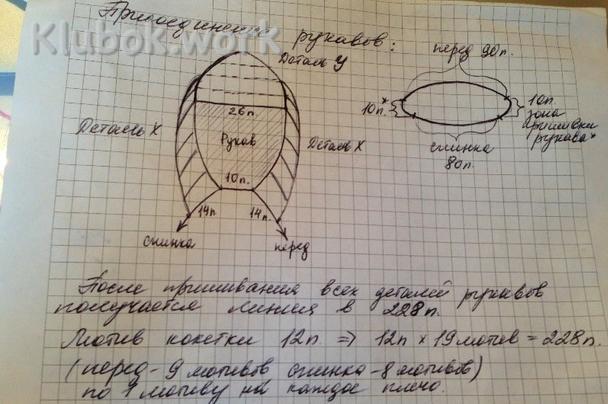 Присоединение рукавов:
Klubok.work
Деталь У
перед 90п.
26п.
10п.*
10п.
зона
пришивки
рукава*
Деталь Х
Рукав
Деталь Х
спинка
80п.
10п.
14п.
14п.
спинка
перед
После пришивания всех деталей рукавов
получается линия в 228п.
Мотив кокетки 12п => 12п x 19 мотив = 228п.
(перед - 9 мотивов спинка - 8 мотивов)
по 1 мотиву на каждое плечо.